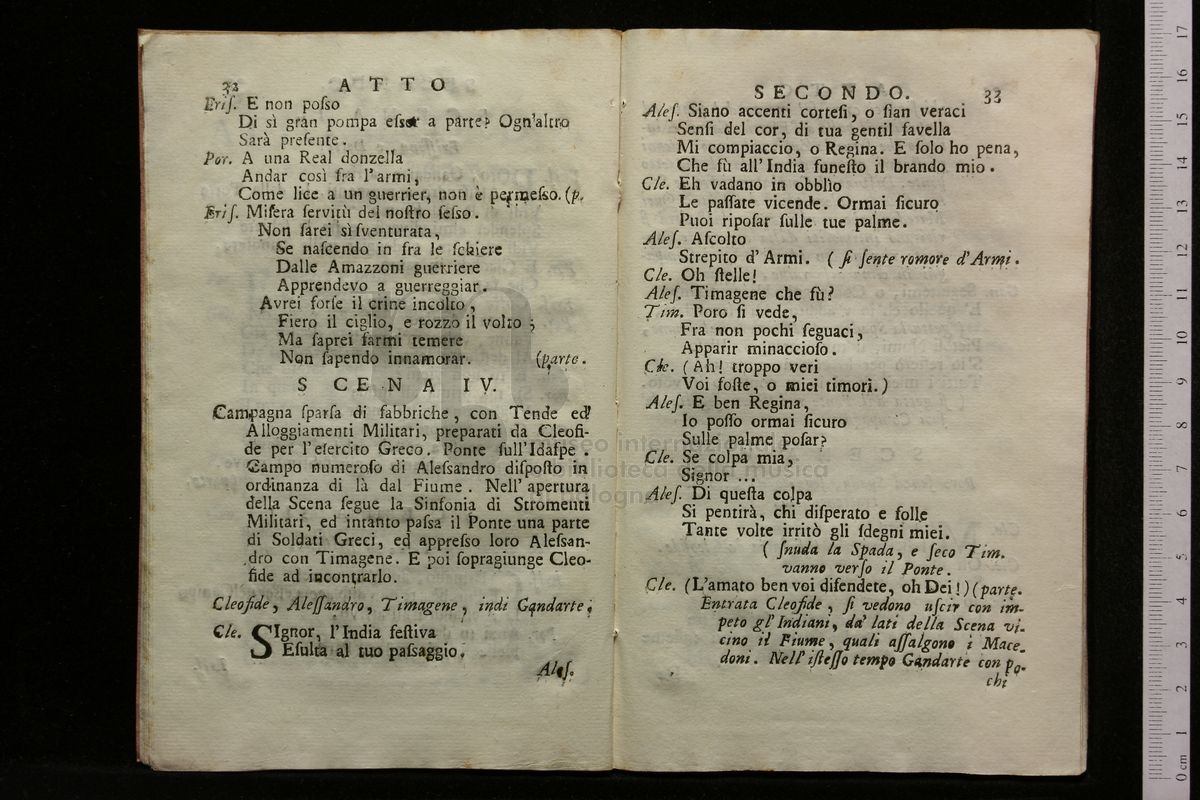 32
ATTO
Eriſ. E non poſso
Di sì gran pompa eſser a parte? Ogn'altro
Sarà preſente.
Por. A una Real donzella
Andar così fra l'armi,
Come lice a un guerrier, non è permeſso. (p.
Eriſ. Miſera ſervitù del noſtro ſeſso.
Non ſarei sì ſventurata,
Se naſcendo in fra le ſchiere
Dalle Amazzoni guerriere
Apprendevo a guerreggiar.
Avrei forſe il crine incolto,
Fiero il ciglio, e rozzo il volto;
Ma ſaprei farmi temere
Non ſapendo innamorar. (parte.
SCENA IV.
Campagna ſparſa di fabbriche, con Tende ed
Alloggiamenti Militari, preparati da Cleofi-
de per l'eſercito Greco. Ponte ſull'Idaſpe.
Campo numeroſo di Aleſſandro diſpoſto in
ordinanza di là dal Fiume. Nell'apertura
della Scena ſegue la Sinfonia di Stromenti
Militari, ed intanto paſsa il Ponte una parte
di Soldati Greci, ed appreſso loro Aleſsan-
dro con Timagene. E poi ſopragiunge Cleo-
fide ad incontrarlo.
Cleofide, Aleſſandro, Timagene, indi Gandarte.
Cle. SIgnor, l'India feſtiva
Eſulta al tuo paſsaggio.
Aleſ.
SECONDO.
33
Aleſ. Siano accenti corteſi, o ſian veraci
Senſi del cor, di tua gentil favella
Mi compiaccio, o Regina. E ſolo ho pena,
Che fù all'India funeſto il brando mio.
Cle. Eh vadano in obblìo
Le paſſate vicende. Ormai ſicuro
Puoi ripoſar ſulle tue palme.
Aleſ. Aſcolto
Strepito d'Armi. (ſi ſente romore d'Armi.
Cle. Oh ſtelle!
Aleſ. Timagene che fù?
Tim. Poro ſi vede,
Fra non pochi ſeguaci,
Apparir minaccioſo.
Cle. (Ah! troppo veri
Voi foſte, o miei timori.)
Aleſ. E ben Regina,
Io poſſo ormai ſicuro
Sulle palme poſar?
Cle. Se colpa mia,
Signor ...
Aleſ. Di queſta colpa
Si pentirà, chi diſperato e folle
Tante volte irritò gli ſdegni miei.
(ſnuda la Spada, e ſeco Tim.
vanno verſo il Ponte.
Cle. (L'amato ben voi difendete, oh Dei!) (parte.
Entrata Cleofide, ſi vedono uſcir con im-
peto gl'Indiani, da' lati della Scena vi-
cino il Fiume, quali aſſalgono i Mace-
doni. Nell'iſteſſo tempo Gandarte con po-
chi